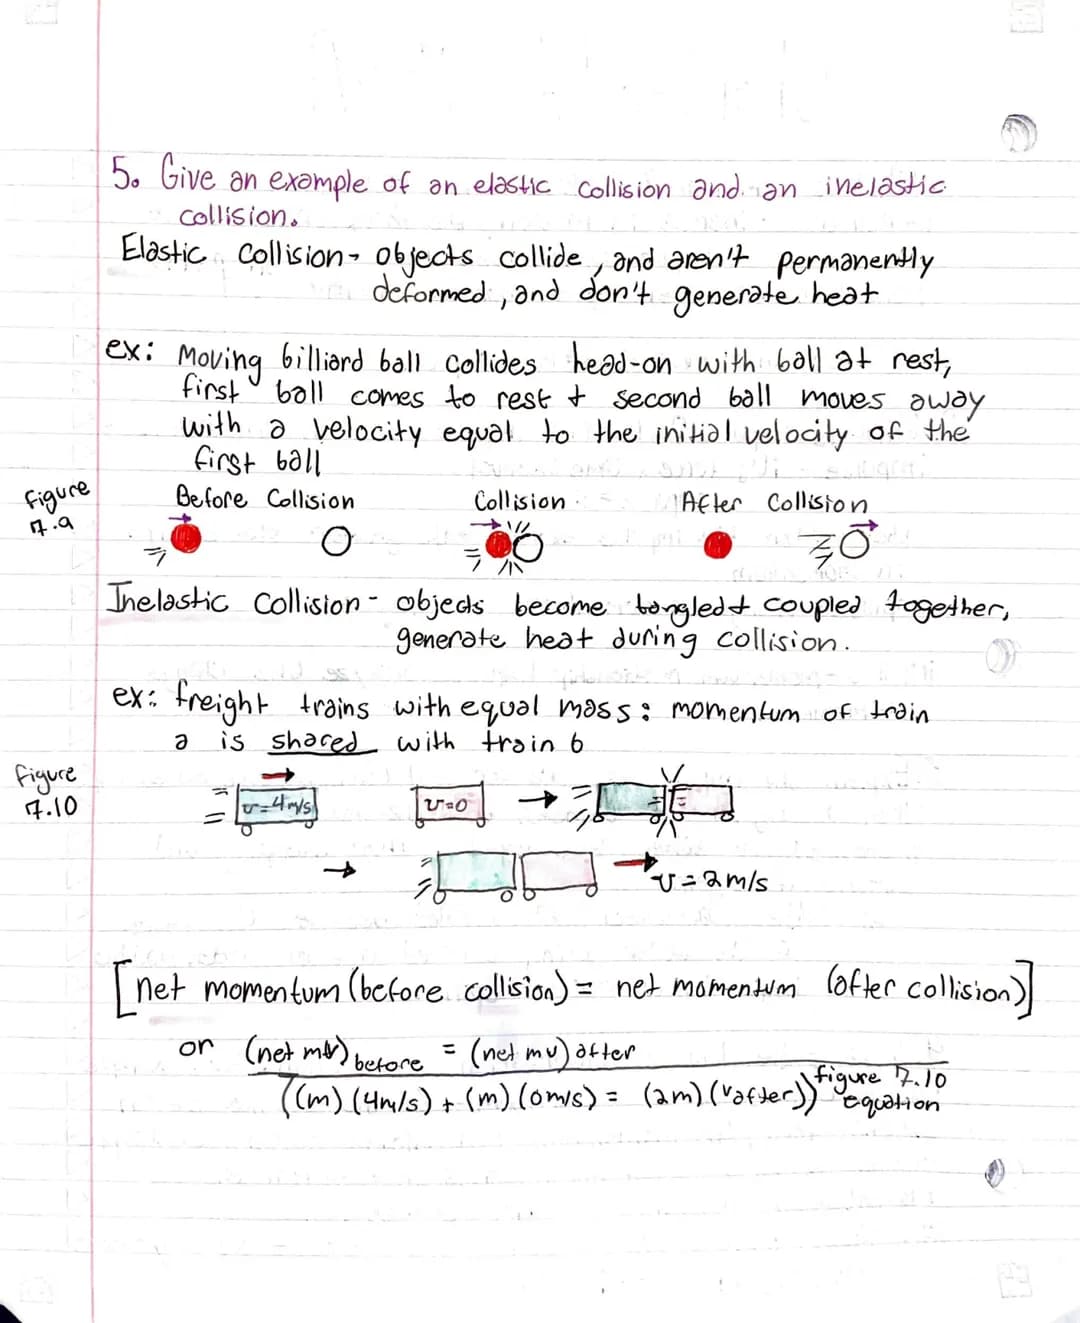 5. Give an example of an elastic collision and an inelastic
collision.
Elastic Collision - objects collide, and aren't permanently
deformed, and don't generate heat
ex: Moving billiard ball collides head-on with ball at rest,
first ball comes to rest + second ball moves away
with a velocity equal to the initial velocity of the
first ball
figure
7.9
Before Collision Collision After Collision
Inelastic Collision - objects become tangled + coupled together,
generate heat during collision.
ex: freight trains with equal mass: momentum of train
a is shared with train b
figure
7.10
v=4m/s v=0
v=2m/s
[net momentum (before collision) = net momentum (after collision)]
or (net mv) before = (net mv) after
((m)(4m/s) + (m)(0m/s) = (2m)(vafter)) figure 7.10
equation